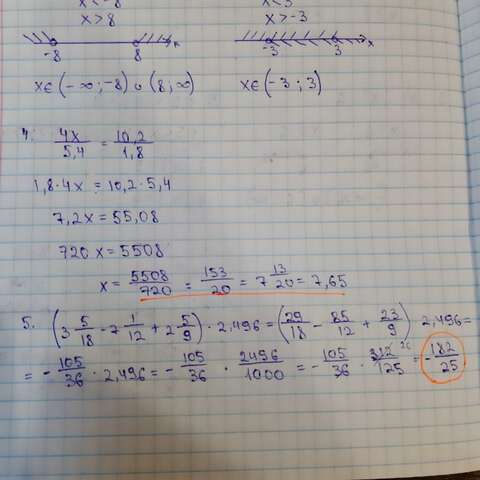 x < -8 x < 3
x > 8 x > -3
-8 8 x -3 3 x
x∈(-∞;-8)∪(8;∞) x∈(-3;3)
4. 4x/5,4 = 10,2/1,8
1,8·4x = 10,2·5,4
7,2x = 55,08
720x = 5508
x = 5508/720 = 153/20 = 7 13/20 = 7,65
5. (3 5/18 - 7 1/12 + 2 5/9) · 2,496 = (29/18 - 85/12 + 23/9) · 2,496 =
= -105/36 · 2,496 = -105/36 · 2496/1000 = -105/36 · 312/125 = -182/25